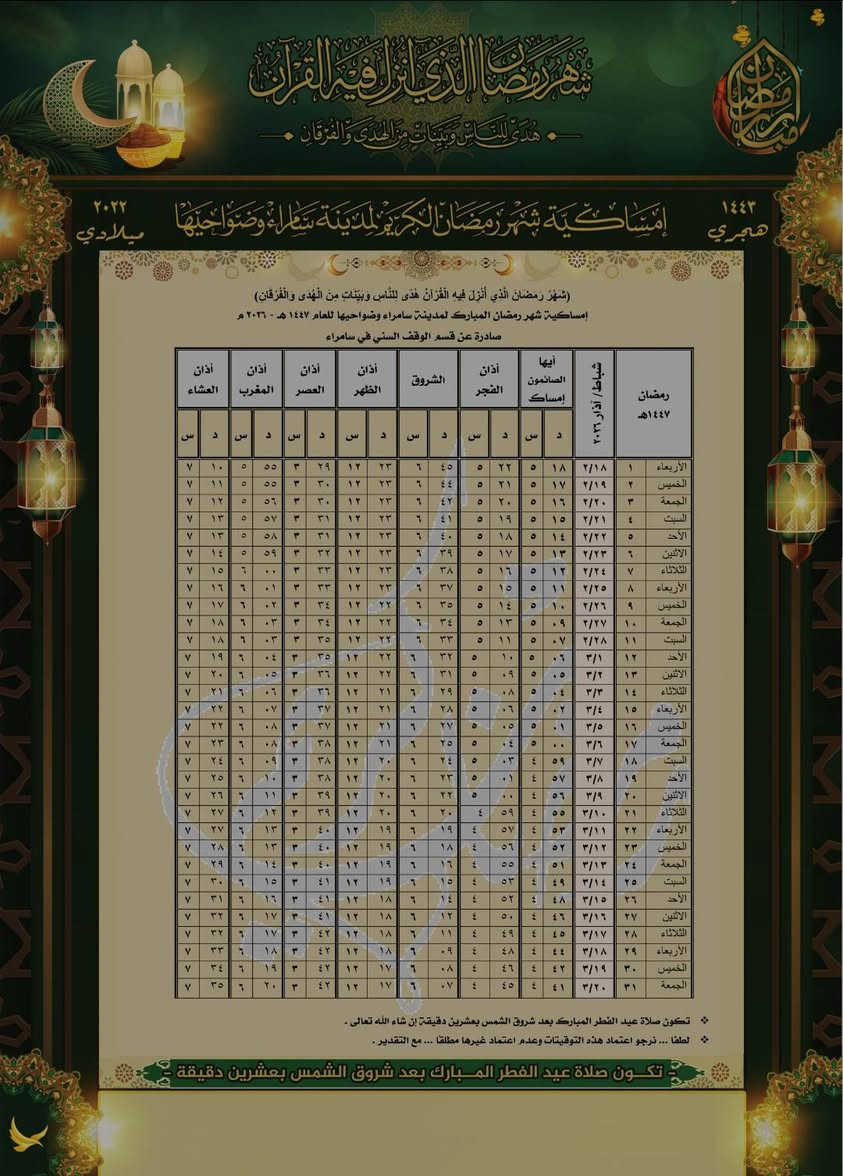 شَهْرُ رَمَضَانَ الَّذِي أُنْزِلَ فِيهِ الْقُرْآنُ
هُدًى لِلنَّاسِ وَبَيِّنَاتٍ مِنَ الْهُدَى وَالْفُرْقَانِ
رمضان مبارك
١٤٤٣ هجري
إمساكية شهر رمضان الكريم لمدينة سامراء وضواحيها
٢٠٢٢ ميلادي
(شَهْرُ رَمَضَانَ الَّذِي أُنْزِلَ فِيهِ الْقُرْآنُ هُدًى لِلنَّاسِ وَبَيِّنَاتٍ مِنَ الْهُدَى وَالْفُرْقَانِ)
إمساكية شهر رمضان المبارك لمدينة سامراء وضواحيها للعام ١٤٤٧ هـ - ٢٠٢٦ م
صادرة عن قسم الوقف السني في سامراء
رمضان ١٤٤٧هـ شباط/ آذار ٢٠٢٦ أيها الصائمون إمساك أذان الفجر الشروق أذان الظهر أذان العصر أذان المغرب أذان العشاء
د س د س د س د س د س د س د س
الأربعاء ١ ٢/١٨ ١٨ ٥ ٢٢ ٥ ٤٥ ٦ ٢٣ ١٢ ٢٩ ٣ ٥٥ ٥ ١٠ ٧
الخميس ٢ ٢/١٩ ١٧ ٥ ٢١ ٥ ٤٤ ٦ ٢٣ ١٢ ٣٠ ٣ ٥٥ ٥ ١١ ٧
الجمعة ٣ ٢/٢٠ ١٦ ٥ ٢٠ ٥ ٤٢ ٦ ٢٣ ١٢ ٣٠ ٣ ٥٦ ٥ ١٢ ٧
السبت ٤ ٢/٢١ ١٥ ٥ ١٩ ٥ ٤١ ٦ ٢٣ ١٢ ٣١ ٣ ٥٧ ٥ ١٣ ٧
الأحد ٥ ٢/٢٢ ١٤ ٥ ١٨ ٥ ٤٠ ٦ ٢٣ ١٢ ٣١ ٣ ٥٨ ٥ ١٣ ٧
الاثنين ٦ ٢/٢٣ ١٣ ٥ ١٧ ٥ ٣٩ ٦ ٢٣ ١٢ ٣٢ ٣ ٥٩ ٥ ١٤ ٧
الثلاثاء ٧ ٢/٢٤ ١٢ ٥ ١٦ ٥ ٣٨ ٦ ٢٣ ١٢ ٣٣ ٣ ٠٠ ٦ ١٥ ٧
الأربعاء ٨ ٢/٢٥ ١١ ٥ ١٥ ٥ ٣٧ ٦ ٢٣ ١٢ ٣٣ ٣ ٠١ ٦ ١٦ ٧
الخميس ٩ ٢/٢٦ ١٠ ٥ ١٤ ٥ ٣٥ ٦ ٢٢ ١٢ ٣٤ ٣ ٠٢ ٦ ١٧ ٧
الجمعة ١٠ ٢/٢٧ ٠٩ ٥ ١٣ ٥ ٣٤ ٦ ٢٢ ١٢ ٣٤ ٣ ٠٣ ٦ ١٨ ٧
السبت ١١ ٢/٢٨ ٠٧ ٥ ١١ ٥ ٣٣ ٦ ٢٢ ١٢ ٣٥ ٣ ٠٣ ٦ ١٨ ٧
الأحد ١٢ ٣/١ ٠٦ ٥ ١٠ ٥ ٣٢ ٦ ٢٢ ١٢ ٣٥ ٣ ٠٤ ٦ ١٩ ٧
الاثنين ١٣ ٣/٢ ٠٥ ٥ ٠٩ ٥ ٣١ ٦ ٢٢ ١٢ ٣٦ ٣ ٠٥ ٦ ٢٠ ٧
الثلاثاء ١٤ ٣/٣ ٠٤ ٥ ٠٨ ٥ ٢٩ ٦ ٢١ ١٢ ٣٦ ٣ ٠٦ ٦ ٢١ ٧
الأربعاء ١٥ ٣/٤ ٠٢ ٥ ٠٦ ٥ ٢٨ ٦ ٢١ ١٢ ٣٧ ٣ ٠٧ ٦ ٢٢ ٧
الخميس ١٦ ٣/٥ ٠١ ٥ ٠٥ ٥ ٢٧ ٦ ٢١ ١٢ ٣٧ ٣ ٠٨ ٦ ٢٢ ٧
الجمعة ١٧ ٣/٦ ٠٠ ٥ ٠٤ ٥ ٢٥ ٦ ٢١ ١٢ ٣٨ ٣ ٠٨ ٦ ٢٣ ٧
السبت ١٨ ٣/٧ ٥٩ ٤ ٠٣ ٥ ٢٤ ٦ ٢٠ ١٢ ٣٨ ٣ ٠٩ ٦ ٢٤ ٧
الأحد ١٩ ٣/٨ ٥٧ ٤ ٠١ ٥ ٢٣ ٦ ٢٠ ١٢ ٣٨ ٣ ١٠ ٦ ٢٥ ٧
الاثنين ٢٠ ٣/٩ ٥٦ ٤ ٠٠ ٥ ٢٢ ٦ ٢٠ ١٢ ٣٩ ٣ ١١ ٦ ٢٦ ٧
الثلاثاء ٢١ ٣/١٠ ٥٥ ٤ ٥٩ ٤ ٢٠ ٦ ٢٠ ١٢ ٣٩ ٣ ١٢ ٦ ٢٧ ٧
الأربعاء ٢٢ ٣/١١ ٥٣ ٤ ٥٧ ٤ ١٩ ٦ ١٩ ١٢ ٤٠ ٣ ١٣ ٦ ٢٧ ٧
الخميس ٢٣ ٣/١٢ ٥٢ ٤ ٥٦ ٤ ١٨ ٦ ١٩ ١٢ ٤٠ ٣ ١٣ ٦ ٢٨ ٧
الجمعة ٢٤ ٣/١٣ ٥١ ٤ ٥٥ ٤ ١٦ ٦ ١٩ ١٢ ٤٠ ٣ ١٤ ٦ ٢٩ ٧
السبت ٢٥ ٣/١٤ ٤٩ ٤ ٥٣ ٤ ١٥ ٦ ١٩ ١٢ ٤١ ٣ ١٥ ٦ ٣٠ ٧
الأحد ٢٦ ٣/١٥ ٤٨ ٤ ٥٢ ٤ ١٤ ٦ ١٨ ١٢ ٤١ ٣ ١٦ ٦ ٣١ ٧
الاثنين ٢٧ ٣/١٦ ٤٦ ٤ ٥٠ ٤ ١٢ ٦ ١٨ ١٢ ٤١ ٣ ١٧ ٦ ٣٢ ٧
الثلاثاء ٢٨ ٣/١٧ ٤٥ ٤ ٤٩ ٤ ١١ ٦ ١٨ ١٢ ٤٢ ٣ ١٧ ٦ ٣٢ ٧
الأربعاء ٢٩ ٣/١٨ ٤٤ ٤ ٤٨ ٤ ٠٩ ٦ ١٨ ١٢ ٤٢ ٣ ١٨ ٦ ٣٣ ٧
الخميس ٣٠ ٣/١٩ ٤٢ ٤ ٤٦ ٤ ٠٨ ٦ ١٧ ١٢ ٤٢ ٣ ١٩ ٦ ٣٤ ٧
الجمعة ٣١ ٣/٢٠ ٤١ ٤ ٤٥ ٤ ٠٧ ٦ ١٧ ١٢ ٤٢ ٣ ٢٠ ٦ ٣٥ ٧
❖ تكون صلاة عيد الفطر المبارك بعد شروق الشمس بعشرين دقيقة إن شاء الله تعالى .
❖ لطفا ... نرجو اعتماد هذه التوقيتات وعدم اعتماد غيرها مطلقا ... مع التقدير .
- تكون صلاة عيد الفطر المبارك بعد شروق الشمس بعشرين دقيقة -